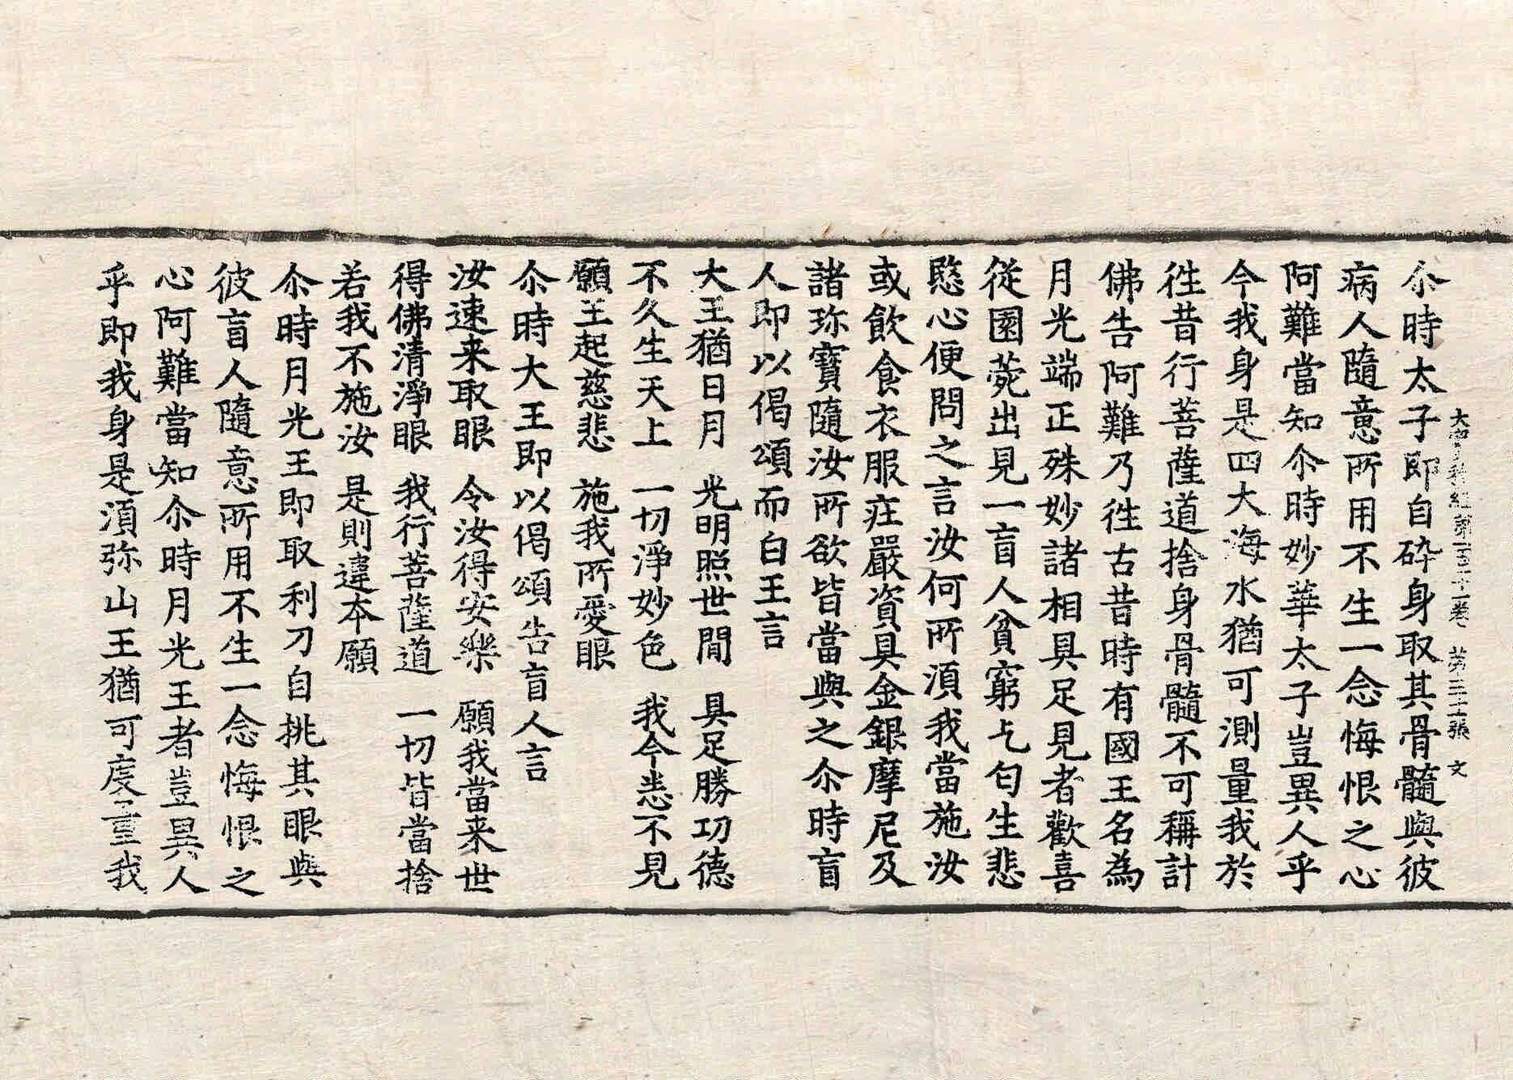 尒時太子即自碎身取其骨髓與彼
大寶積經第一百十一卷 第三十張 文
病人隨意所用不生一念悔恨之心
阿難當知尒時妙華太子豈異人乎
今我身是四大海水猶可測量我於
徃昔行菩薩道捨身骨髓不可稱計
佛告阿難乃徃古昔時有國王名為
月光端正殊妙諸相具足見者歡喜
從園菀出見一盲人貧窮乞匃生悲
愍心便問之言汝何所湏我當施汝
或飲食衣服疘嚴資具金銀摩尼及
諸珎寶隨汝所欲皆當與之尒時盲
人即以偈頌而白王言
大王猶日月 光明照世閒 具足勝功德
不久生天上 一切淨妙色 我今悉不見
願王起慈悲 施我所愛眼
尒時大王即以偈頌告盲人言
汝速来取眼 令汝得安樂 願我當来世
得佛清淨眼 我行菩薩道 一切皆當捨
若我不施汝 是則違本願
尒時月光王即取利刀自挑其眼與
彼盲人隨意所用不生一念悔恨之
心阿難當知尒時月光王者豈異人
乎即我身是湏弥山王猶可度量我